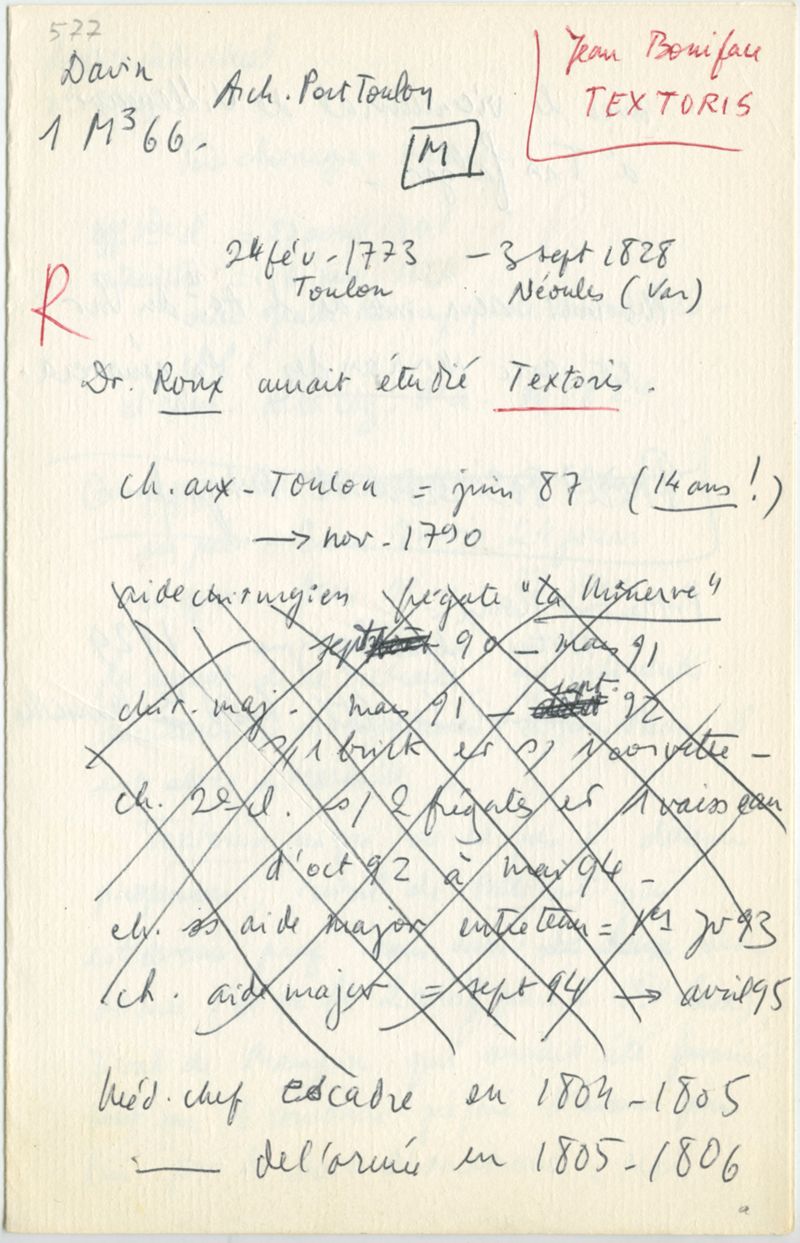 577
Davin Arch. Port Toulon
1 M³ 66.
M
Jean Boniface
TEXTORIS
24 fév - 1773 - 3 sept 1828
Toulon Néoules (Var)
R
Dr. Roux aurait étudié Textoris.
ch. aux - Toulon = juin 87 (14 ans !)
→ nov - 1790
aide chirurgien frégate "La Minerve"
sept 90 - mars 91
chir. maj. mars 91 - sept. 92
s/ 1 brick et s/ 1 corvette -
ch. 2e cl. s/ 2 frégates et 1 vaisseau
d'oct 92 à mai 94 -
ch. ss aide major entretenu = 1er jv 93
ch. aide major = sept 94 → avril 95
Méd. chef escadre en 1804 - 1805
—— de l'armée en 1805 - 1806
a